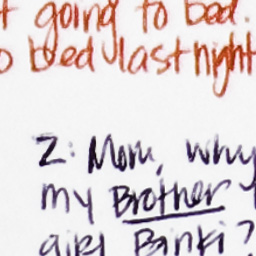 going to bed.
bed last night
Z: Mom, why
my Brother
girl Banki?